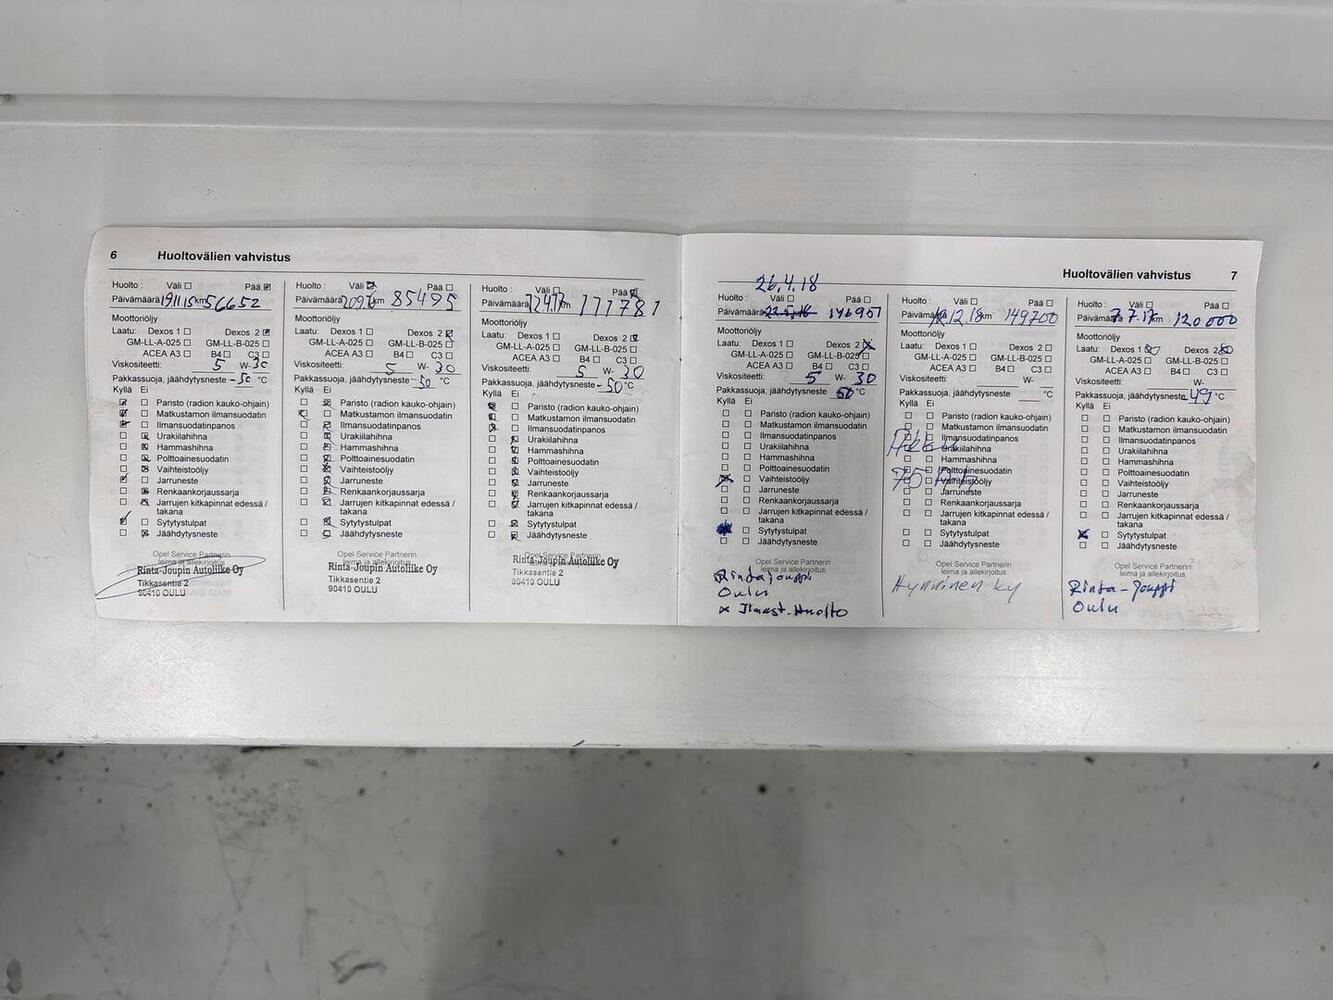 6 Huoltovälien vahvistus
Huolto : Väli Pää
Päivämäärä 19.11.15 km 56652
Moottoriöljy
Laatu: Dexos 1 Dexos 2
GM-LL-A-025 GM-LL-B-025
ACEA A3 B4 C3
Viskositeetti: 5 W- 30
Pakkassuoja, jäähdytysneste -50 °C
Kyllä Ei
Paristo (radion kauko-ohjain)
Matkustamon ilmansuodatin
Ilmansuodatinpanos
Urakiilahihna
Hammashihna
Polttoainesuodatin
Vaihteistoöljy
Jarruneste
Renkaankorjaussarja
Jarrujen kitkapinnat edessä /
takana
Sytytystulpat
Jäähdytysneste
Opel Service Partnerin
leima ja allekirjoitus
Rinta-Joupin Autoliike Oy
Tikkasentie 2
90410 OULU
Huolto : Väli Pää
Päivämäärä km 85495
Moottoriöljy
Laatu: Dexos 1 Dexos 2
GM-LL-A-025 GM-LL-B-025
ACEA A3 B4 C3
Viskositeetti: 5 W- 30
Pakkassuoja, jäähdytysneste -50 °C
Kyllä Ei
Paristo (radion kauko-ohjain)
Matkustamon ilmansuodatin
Ilmansuodatinpanos
Urakiilahihna
Hammashihna
Polttoainesuodatin
Vaihteistoöljy
Jarruneste
Renkaankorjaussarja
Jarrujen kitkapinnat edessä /
takana
Sytytystulpat
Jäähdytysneste
Opel Service Partnerin
leima ja allekirjoitus
Rinta-Joupin Autoliike Oy
Tikkasentie 2
90410 OULU
Huolto : Väli Pää
Päivämäärä km
Moottoriöljy
Laatu: Dexos 1 Dexos 2
GM-LL-A-025 GM-LL-B-025
ACEA A3 B4 C3
Viskositeetti: 5 W- 30
Pakkassuoja, jäähdytysneste -50 °C
Kyllä Ei
Paristo (radion kauko-ohjain)
Matkustamon ilmansuodatin
Ilmansuodatinpanos
Urakiilahihna
Hammashihna
Polttoainesuodatin
Vaihteistoöljy
Jarruneste
Renkaankorjaussarja
Jarrujen kitkapinnat edessä /
takana
Sytytystulpat
Jäähdytysneste
Opel Service Partnerin
leima ja allekirjoitus
Rinta-Joupin Autoliike Oy
Tikkasentie 2
90410 OULU
Huoltovälien vahvistus 7
26.4.18
Huolto : Väli Pää
Päivämäärä 146907
Moottoriöljy
Laatu: Dexos 1 Dexos 2
GM-LL-A-025 GM-LL-B-025
ACEA A3 B4 C3
Viskositeetti: 5 W- 30
Pakkassuoja, jäähdytysneste 50 °C
Kyllä Ei
Paristo (radion kauko-ohjain)
Matkustamon ilmansuodatin
Ilmansuodatinpanos
Urakiilahihna
Hammashihna
Polttoainesuodatin
Vaihteistoöljy
Jarruneste
Renkaankorjaussarja
Jarrujen kitkapinnat edessä /
takana
Sytytystulpat
Jäähdytysneste
Opel Service Partnerin
leima ja allekirjoitus
Rintajouppi
Oulu
x Ilmast. Huolto
Huolto : Väli Pää
Päivämäärä 12.12.18 km 149700
Moottoriöljy
Laatu: Dexos 1 Dexos 2
GM-LL-A-025 GM-LL-B-025
ACEA A3 B4 C3
Viskositeetti: W-
Pakkassuoja, jäähdytysneste °C
Kyllä Ei
Paristo (radion kauko-ohjain)
Matkustamon ilmansuodatin
Ilmansuodatinpanos
Urakiilahihna
Hammashihna
Polttoainesuodatin
Vaihteistoöljy
Jarruneste
Renkaankorjaussarja
Jarrujen kitkapinnat edessä /
takana
Sytytystulpat
Jäähdytysneste
Opel Service Partnerin
leima ja allekirjoitus
Hynninen ky
Huolto : Väli Pää
Päivämäärä 7.7.17 km 120000
Moottoriöljy
Laatu: Dexos 1 Dexos 2
GM-LL-A-025 GM-LL-B-025
ACEA A3 B4 C3
Viskositeetti: W-
Pakkassuoja, jäähdytysneste -49 °C
Kyllä Ei
Paristo (radion kauko-ohjain)
Matkustamon ilmansuodatin
Ilmansuodatinpanos
Urakiilahihna
Hammashihna
Polttoainesuodatin
Vaihteistoöljy
Jarruneste
Renkaankorjaussarja
Jarrujen kitkapinnat edessä /
takana
Sytytystulpat
Jäähdytysneste
Opel Service Partnerin
leima ja allekirjoitus
Rinta-Jouppi
Oulu